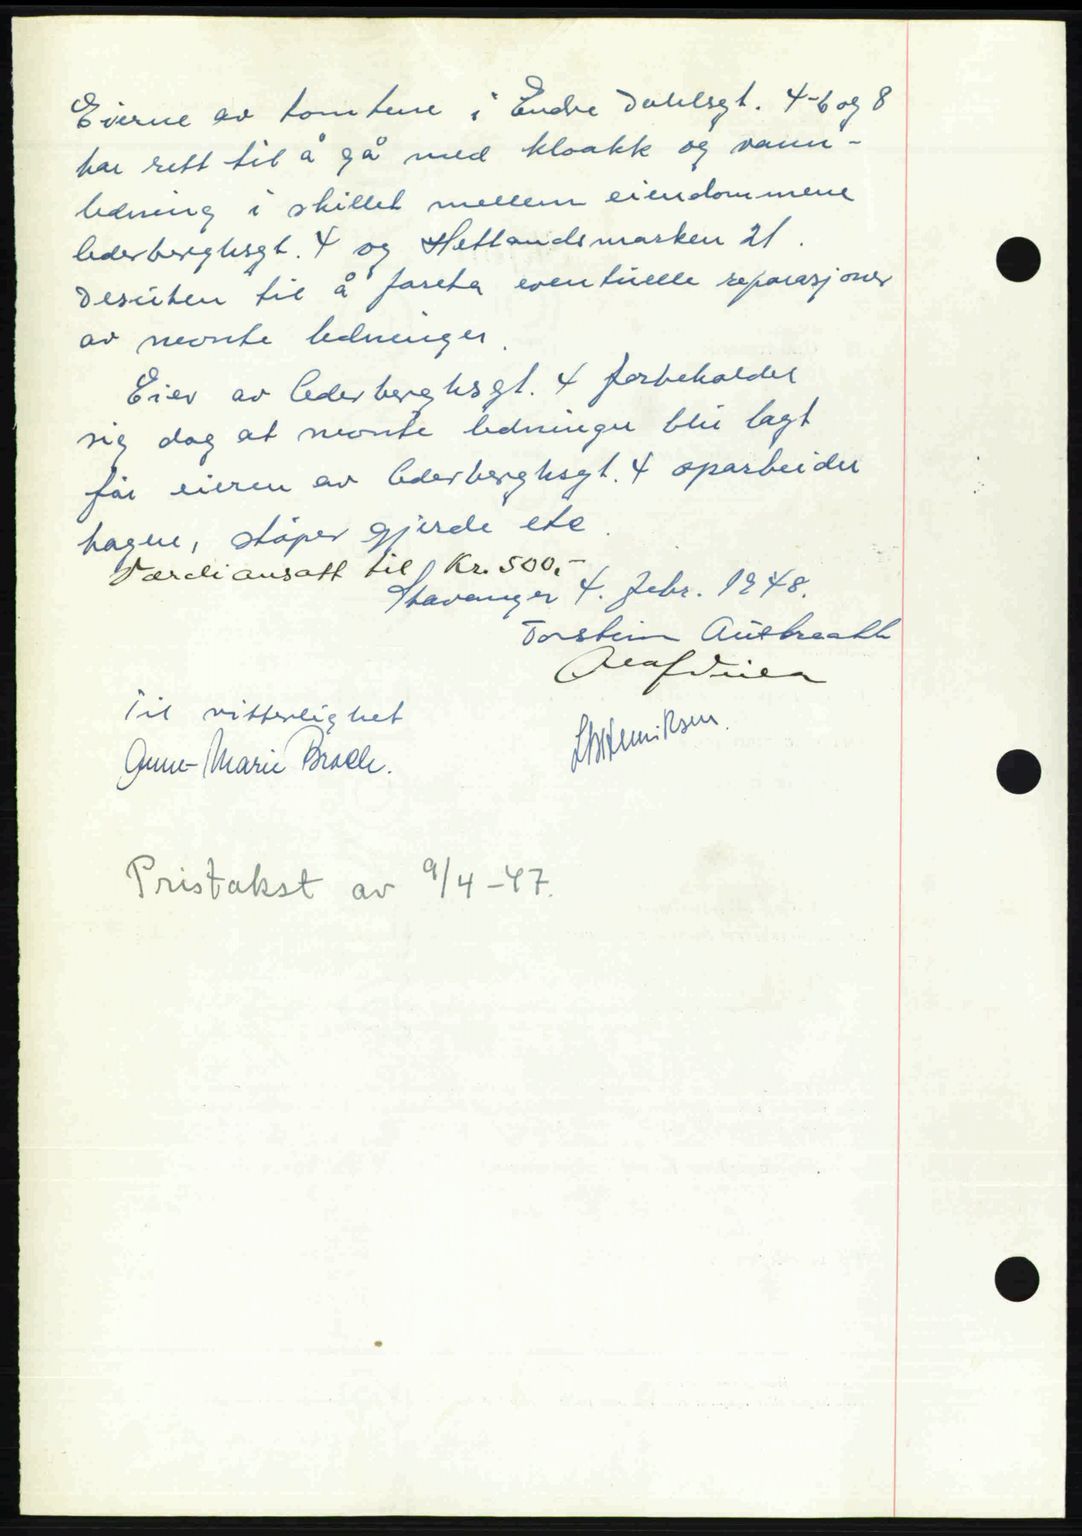 Eierne av tomtene i Endre Dahlsgt. 4-6 og 8
har rett til å gå med kloakk og vann-
ledning i skillet mellem eiendommene
Cederberghsgt. 4 og Hetlandsmarken 21.
Desuten til å foreta eventuelle reparasjoner
av nevnte ledninger.
Eier av Cederberghsgt. 4 forbeholder
sig dog at nevnte ledninger blir lagt
før eieren av Cederberghsgt. 4 oparbeider
hagen, støper gjerde etc.
Værdiansatt til Kr. 500,-
Stavanger 4. febr. 1948.
Torstein
Olaf
Til vitterlighet
Henriksen.
Anne-Marie Broch.
Pristakst av 9/4-47.